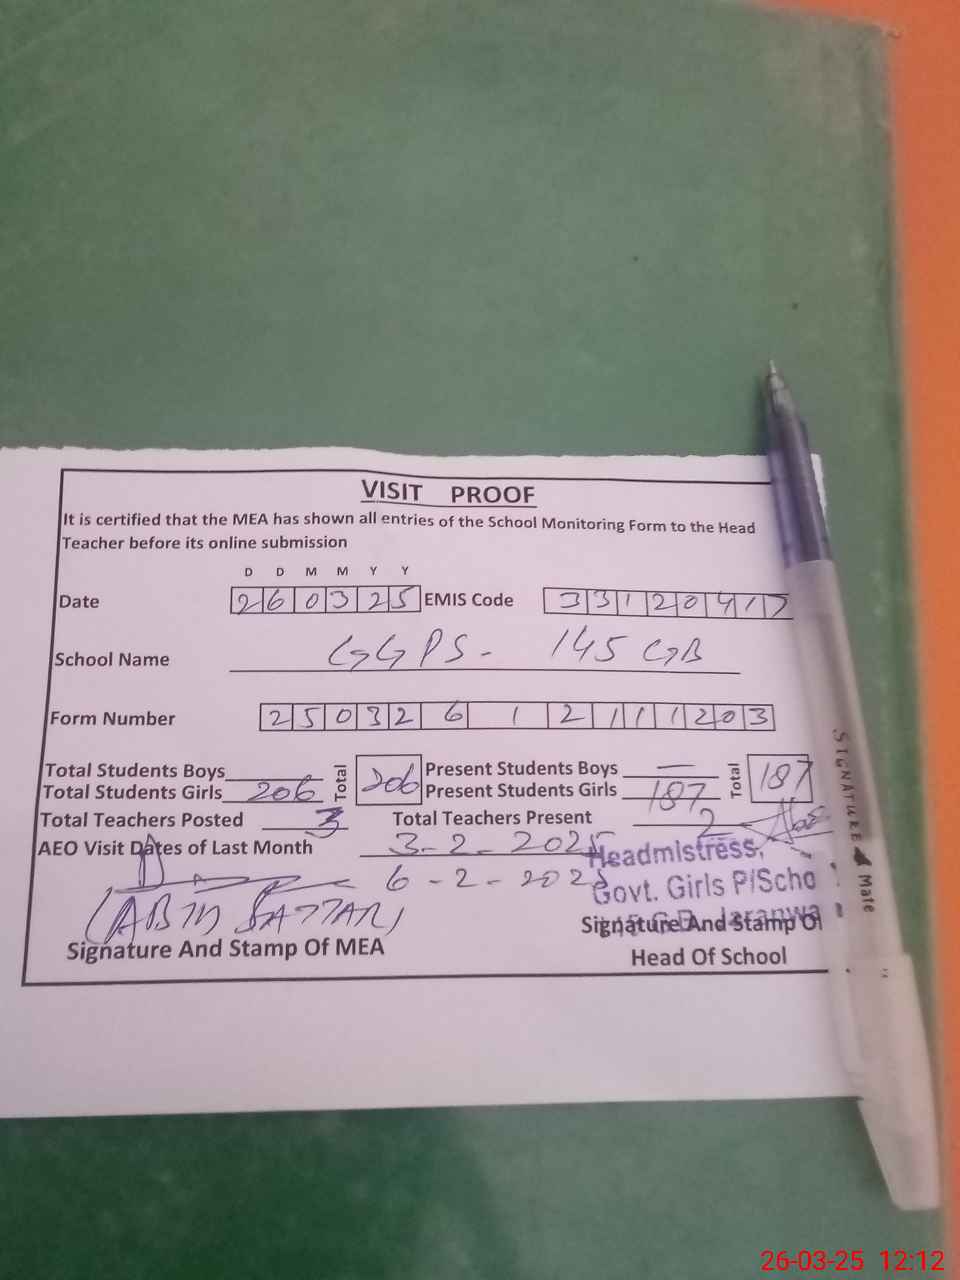 VISIT PROOF
It is certified that the MEA has shown all entries of the School Monitoring Form to the Head
Teacher before its online submission
D D M M Y Y
Date 2 6 0 3 2 5 EMIS Code 3 3 1 2 0 4 1 7
School Name GGPS - 145 GB
Form Number 2 5 0 3 2 6 1 2 1 1 1 2 0 3
Total Students Boys Total 206 Present Students Boys — Total 187
Total Students Girls 206 Present Students Girls 187
Total Teachers Posted 3 Total Teachers Present 2
AEO Visit Dates of Last Month 3-2-2025
6-2-2025
Headmistress,
Govt. Girls P/Scho
Jaranwa
(ABID SATTAR)
Signature And Stamp Of MEA
Signature And Stamp Of
Head Of School
SIGNATURE Mate
26-03-25 12:12